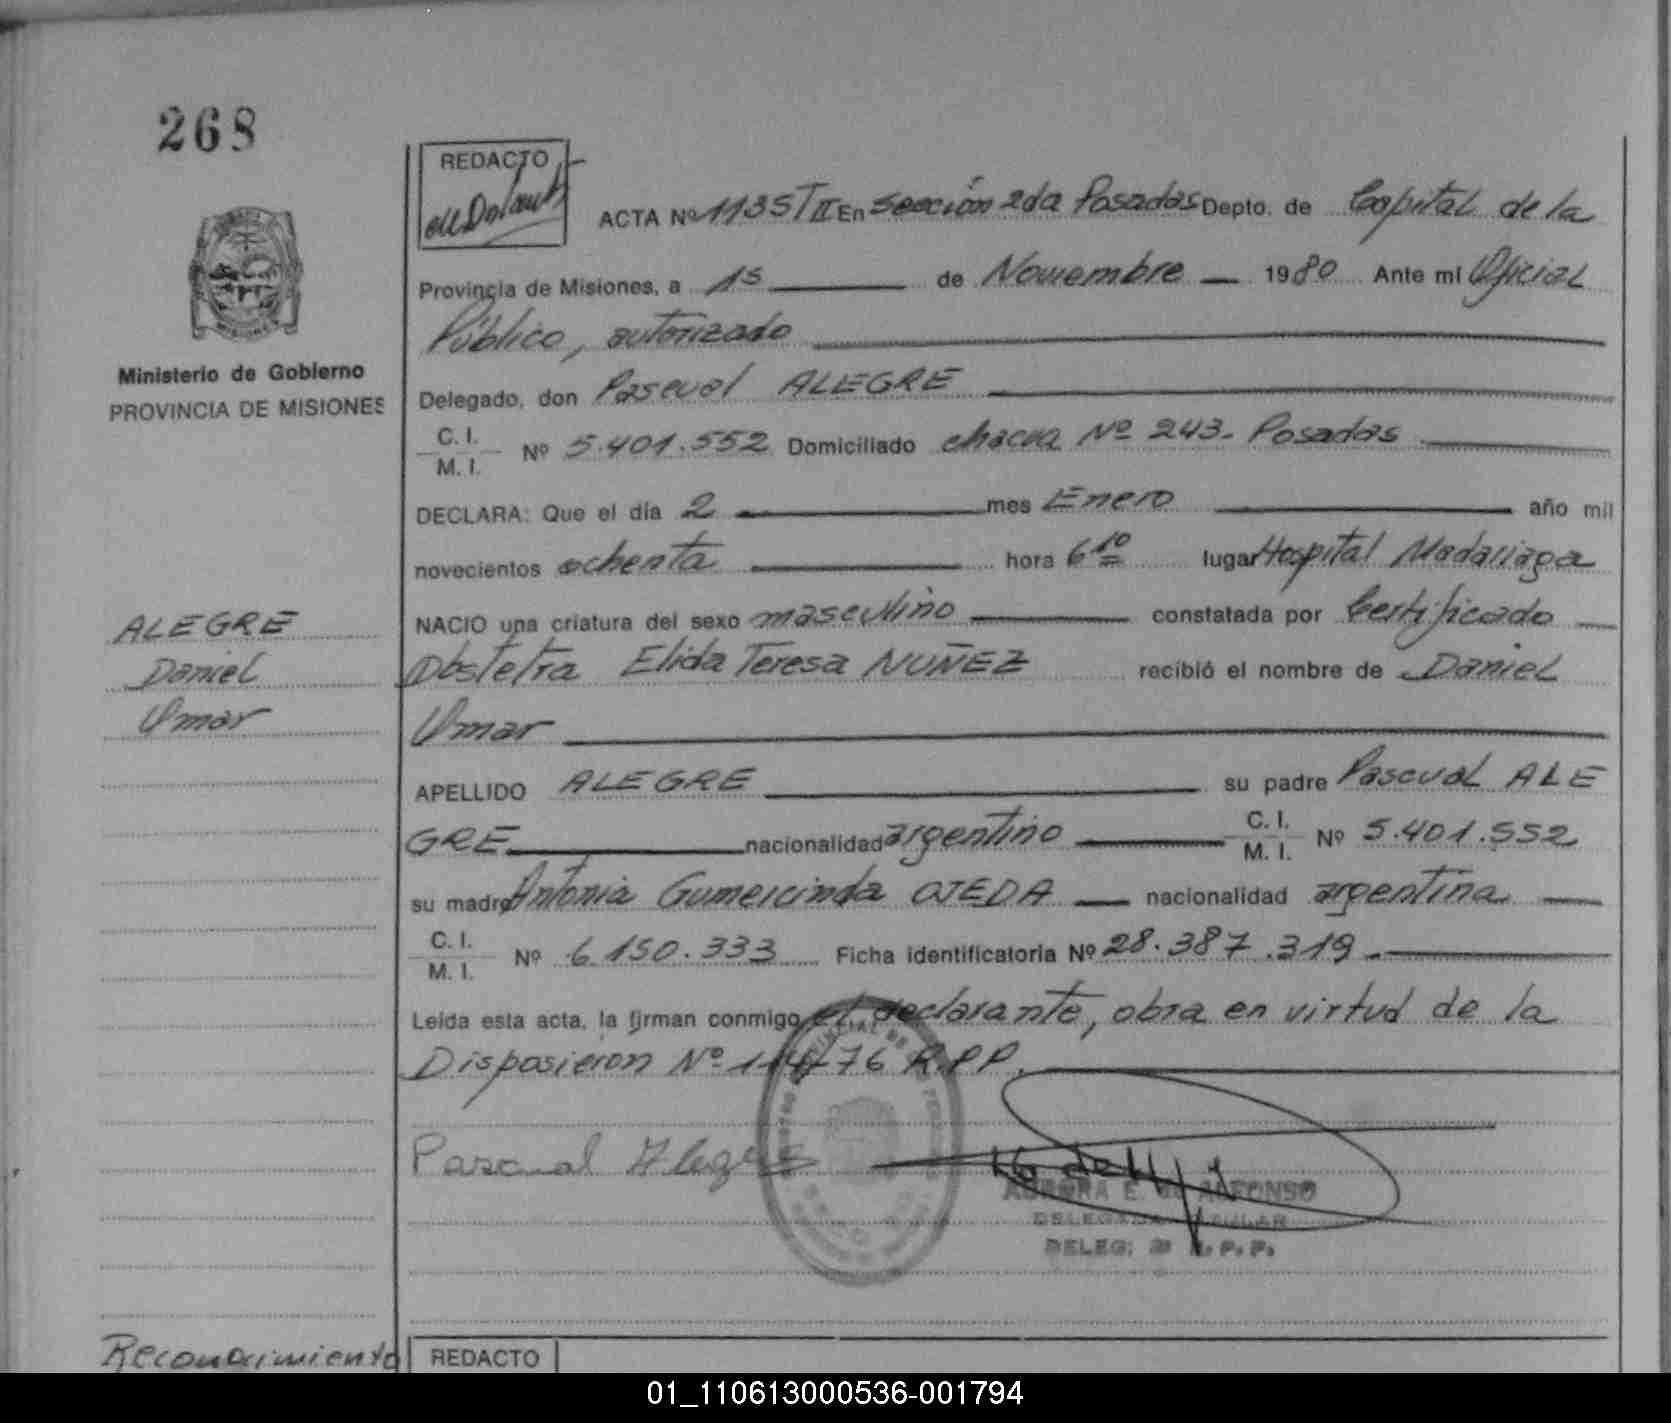 268
REDACTO
ACTA Nº 1135 T II En Sección 2da Posadas Depto. de Capital de la
Provincia de Misiones, a 13 de Noviembre 1980 Ante mi Oficial
Público, autorizado
Ministerio de Gobierno
PROVINCIA DE MISIONES
Delegado, don Pascual ALEGRE
C. I.
M. I. Nº 5.401.552 Domiciliado chacra Nº 243- Posadas
DECLARA: Que el día 2 mes Enero año mil
novecientos ochenta hora 6 10 lugar Hospital Madariaga
NACIO una criatura del sexo masculino constatada por Certificado
ALEGRE
Daniel
Omar
Obstetra Elida Teresa NUÑEZ recibió el nombre de Daniel
Omar
APELLIDO ALEGRE su padre Pascual ALE
GRE nacionalidad argentino C. I. M. I. Nº 5.401.552
su madre Antonia Gumercinda OJEDA nacionalidad argentina
C. I.
M. I. Nº 6.150.333 Ficha identificatoria Nº 28.387.319
Leída esta acta, la firman conmigo el declarante, obra en virtud de la
Disposicion Nº 114/76 R.P.P.
Pascual Alegre
AURORA E. de ALFONSO
DELEGADA TITULAR
DELEG: 2ª R.P.P.
Reconocimiento
REDACTO
01_110613000536-001794